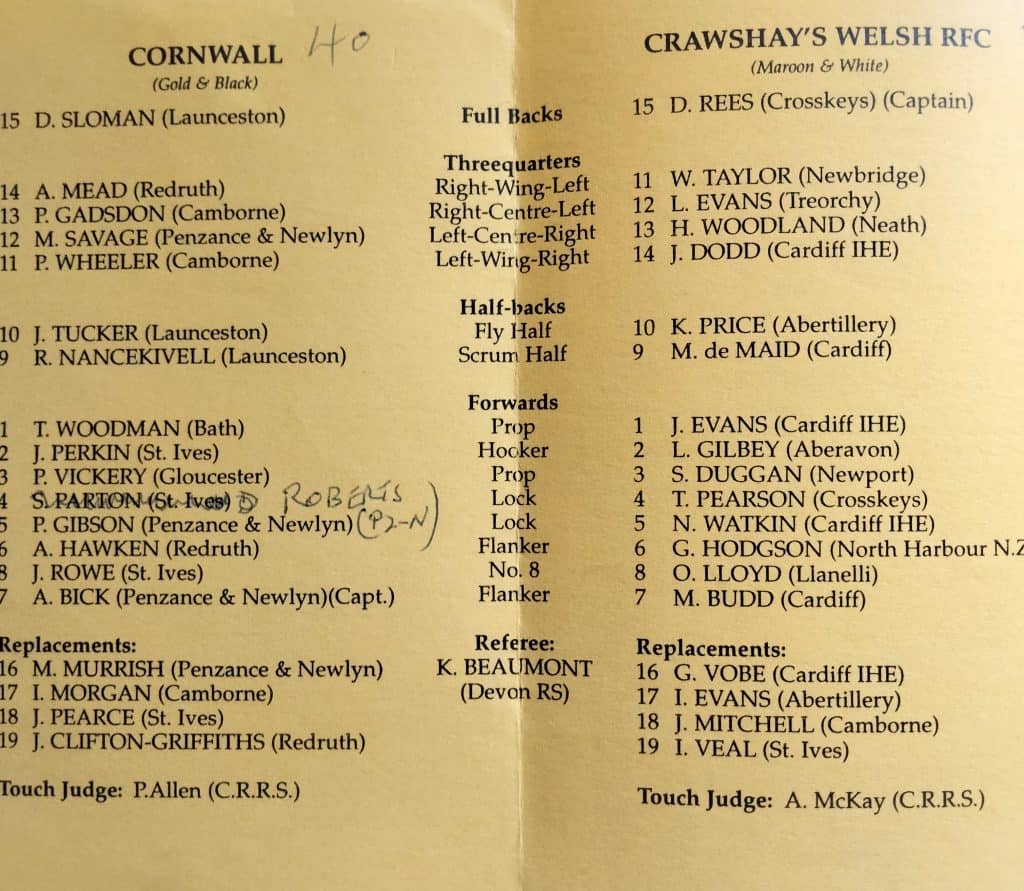 CORNWALL 40
(Gold & Black)
15 D. SLOMAN (Launceston)
14 A. MEAD (Redruth)
13 P. GADSDON (Camborne)
12 M. SAVAGE (Penzance & Newlyn)
11 P. WHEELER (Camborne)
10 J. TUCKER (Launceston)
9 R. NANCEKIVELL (Launceston)
1 T. WOODMAN (Bath)
2 J. PERKIN (St. Ives)
3 P. VICKERY (Gloucester)
4 S. PARTON (St. Ives) D ROBERTS
5 P. GIBSON (Penzance & Newlyn) (PZ-N)
6 A. HAWKEN (Redruth)
8 J. ROWE (St. Ives)
7 A. BICK (Penzance & Newlyn)(Capt.)
Replacements:
16 M. MURRISH (Penzance & Newlyn)
17 I. MORGAN (Camborne)
18 J. PEARCE (St. Ives)
19 J. CLIFTON-GRIFFITHS (Redruth)
Touch Judge: P.Allen (C.R.R.S.)
Full Backs
Threequarters
Right-Wing-Left
Right-Centre-Left
Left-Centre-Right
Left-Wing-Right
Half-backs
Fly Half
Scrum Half
Forwards
Prop
Hooker
Prop
Lock
Lock
Flanker
No. 8
Flanker
Referee:
K. BEAUMONT
(Devon RS)
CRAWSHAY'S WELSH RFC
(Maroon & White)
15 D. REES (Crosskeys) (Captain)
11 W. TAYLOR (Newbridge)
12 L. EVANS (Treorchy)
13 H. WOODLAND (Neath)
14 J. DODD (Cardiff IHE)
10 K. PRICE (Abertillery)
9 M. de MAID (Cardiff)
1 J. EVANS (Cardiff IHE)
2 L. GILBEY (Aberavon)
3 S. DUGGAN (Newport)
4 T. PEARSON (Crosskeys)
5 N. WATKIN (Cardiff IHE)
6 G. HODGSON (North Harbour N.Z
8 O. LLOYD (Llanelli)
7 M. BUDD (Cardiff)
Replacements:
16 G. VOBE (Cardiff IHE)
17 I. EVANS (Abertillery)
18 J. MITCHELL (Camborne)
19 I. VEAL (St. Ives)
Touch Judge: A. McKay (C.R.R.S.)